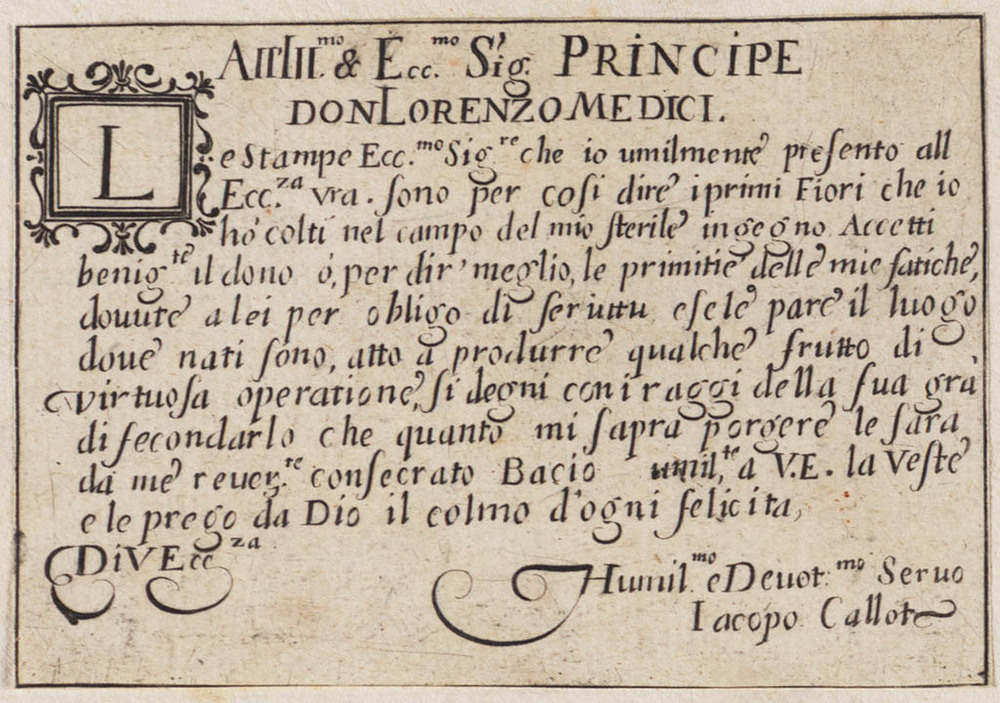 All Ill.mo & Ecc.mo Sig. PRINCIPE
DON LORENZO MEDICI.
Le Stampe Ecc.mo Sig.re che io umilmente presento all
Ecc.za vra. sono per cosi dire i primi Fiori che io
hò colti nel campo del mio sterile ingegno Accetti
benig.te il dono ó, per dir' meglio, le primitie delle mie fatiche,
douute a lei per obligo di seruitu e se le pare il luogo
doue nati sono, atto à produrre qualche frutto di
virtuosa operatione, si degni con i raggi della sua gra
di fecondarlo che quanto mi sapra porgere le sara
da me reuer.te consecrato Bacio umil.te a V.E. la Veste
e le prego da Dio il colmo d'ogni felicita,
Di V Ecc.za
Humil.mo e Deuot.mo Seruo
Iacopo Callot